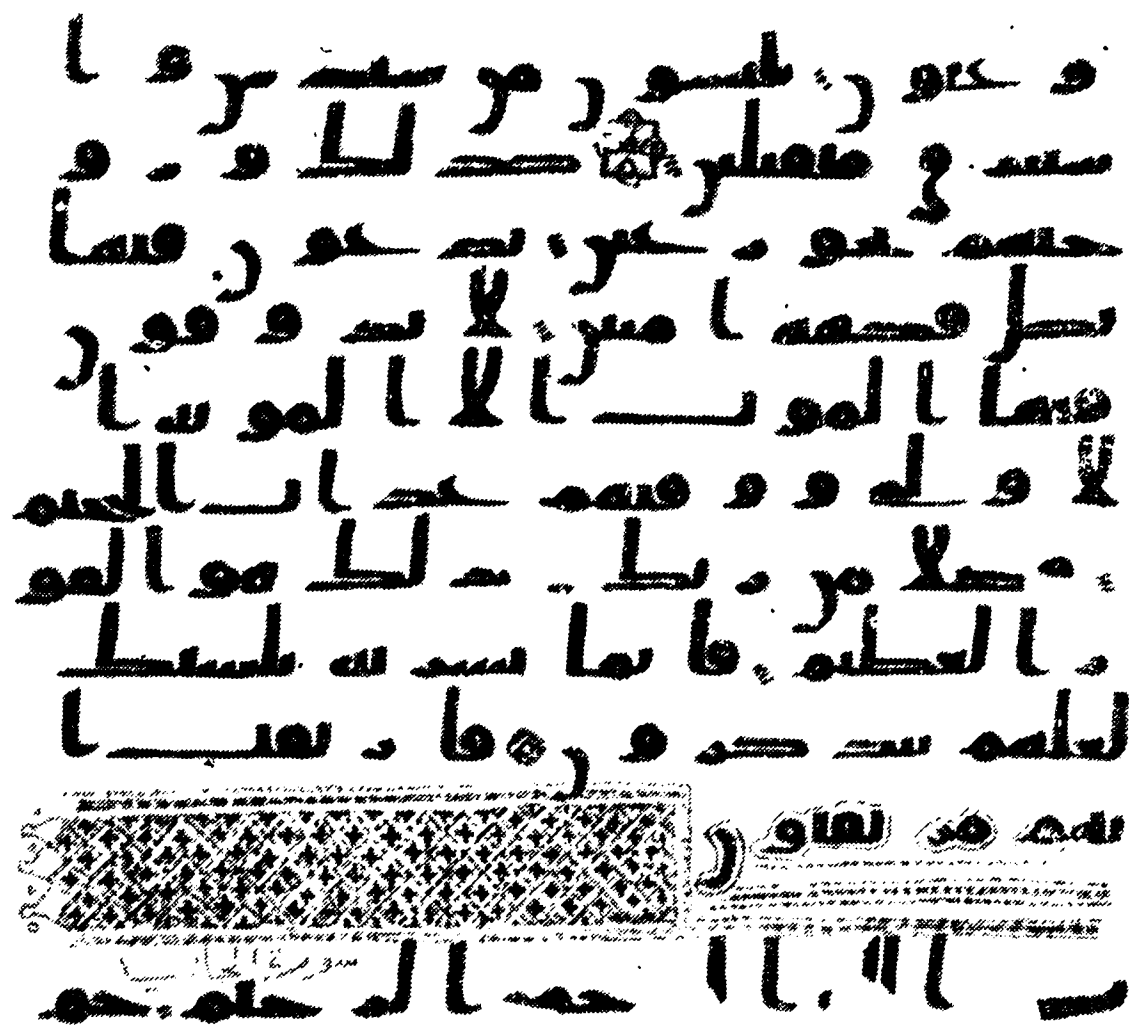 وعيون يلبسون من سندس وا
ستبرق متقبلين كذلك وزو
جنهم بحور عين يدعون فيها
بكل فكهة امنين لا يذوقون
فيها الموت الا الموتة ا
لاولى ووقيهم عذاب الجحيم
فضلا من ربك ذلك هو الفو
ز العظيم فانما يسرنه بلسنك
لعلهم يتذكرون فارتقب ا
نهم مرتقبون
بسم الله الرحمن الرحيم حم